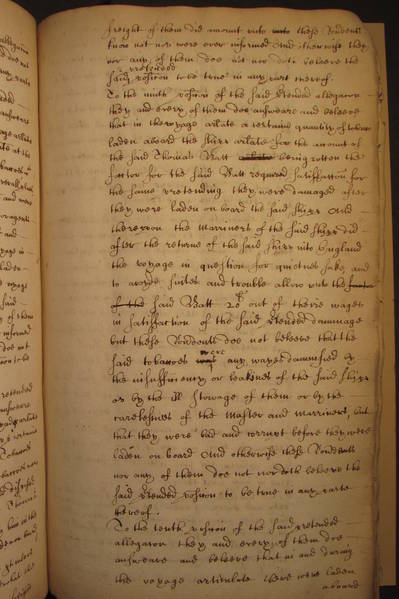 freight of them did amount unto unto these Rendents
knew not nor were ever informed And otherwise they
nor any of them doe not nor doth beleeve the
said pretended position to be true in any parte thereof.
To the nineth position of the said pretended allegation
they and every of them doe answeare and beleeve
that in the voyage arlate a certaine quantity of tobaccoe
laden aboard the shipp arlate for the amount of
the said Thomas Batt being rotten the
factor for the said Batt required satisfaction for
the same pretending they were damaged after
they were laden on board the said shipp And
thereupon the Marriners of the said shipp did
after the returne of the said shipp into England
the voyage in question for quietnes sake and
to avoyde suites and trouble allow unto the factor
of the said Batt 20 out of theire wages
in satisfaction of the said pretended dammage
but these Rendents doe not beleeve that the
said tobaccoes were any wayes damnifyed by
the insufficiency or leakines of the said shipp
or by the ill stowage of them or by the
carelessnes of the Master and marriners, but
that they were bad and corrupt before they were
laden on board And otherwise these Rendents
nor any of them doe not nor doth beleeve the
said pretended position to be true in any parte
thereof.
To the tenth position of the said pretended
allegation they and every of them doe
answeare and beleeve that in and during
the voyage articulate there were laden
aboard